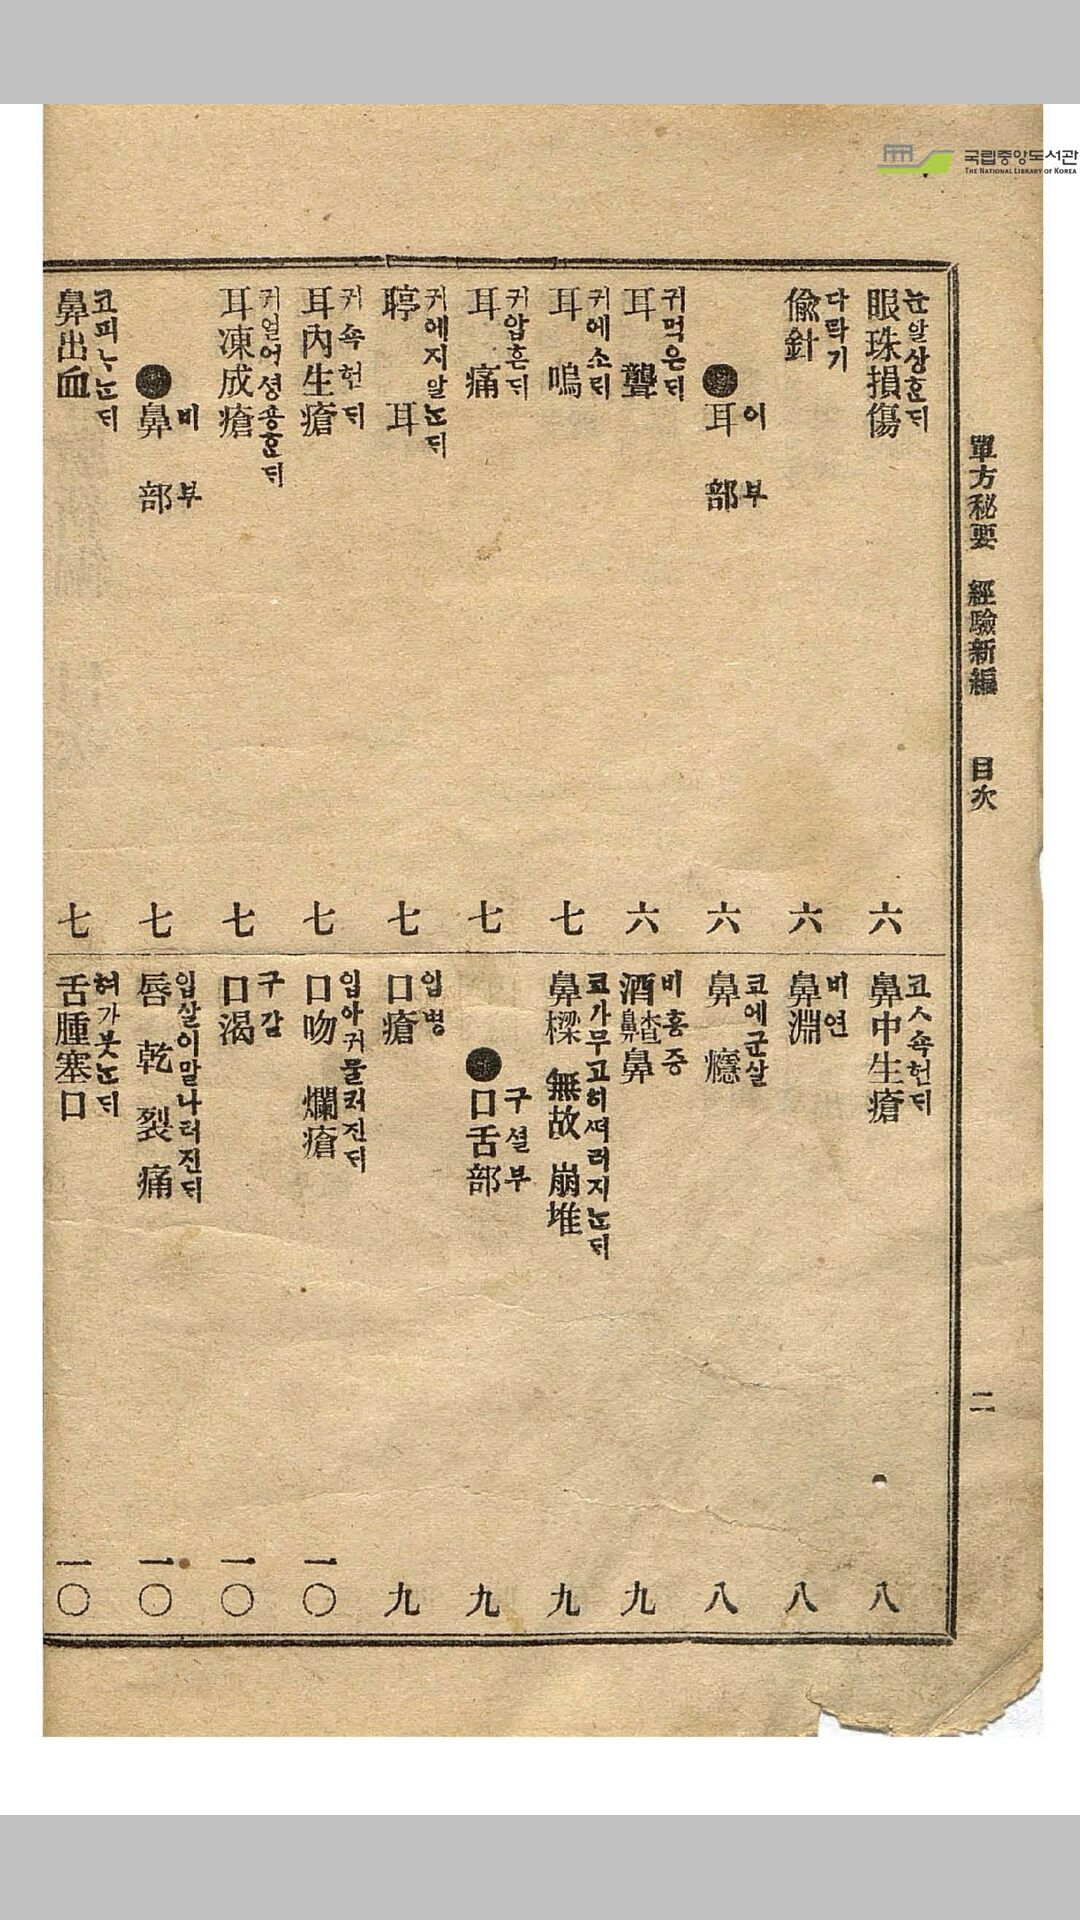 국립중앙도서관
THE NATIONAL LIBRARY OF KOREA
單方秘要 經驗新編 目次 二
눈알상ᄒᆞᆫᄃᆡ
眼珠損傷 六
다락기
偸針 六
이부
耳部 六
귀먹은ᄃᆡ
耳聾 六
귀에소ᄅᆡ
耳嗚 七
귀압흔ᄃᆡ
耳痛 七
귀에지알는ᄃᆡ
聤耳 七
귀속헌ᄃᆡ
耳內生瘡 七
귀얼어셩죵ᄒᆞᆫᄃᆡ
耳凍成瘡 七
비부
鼻部 七
코피ᄂᆞ는ᄃᆡ
鼻出血 七
코ㅅ속헌ᄃᆡ
鼻中生瘡 八
비연
鼻淵 八
코에군살
鼻癮 八
비홍증
酒齄鼻 九
코가무고히ᄯᅥ러지는ᄃᆡ
鼻樑無故崩堆 九
구셜부
口舌部 九
입병
口瘡 九
입아귀물커진ᄃᆡ
口吻爛瘡 一〇
구갈
口渴 一〇
입살이말나터진ᄃᆡ
唇乾裂痛 一〇
혀가붓는ᄃᆡ
舌腫塞口 一〇